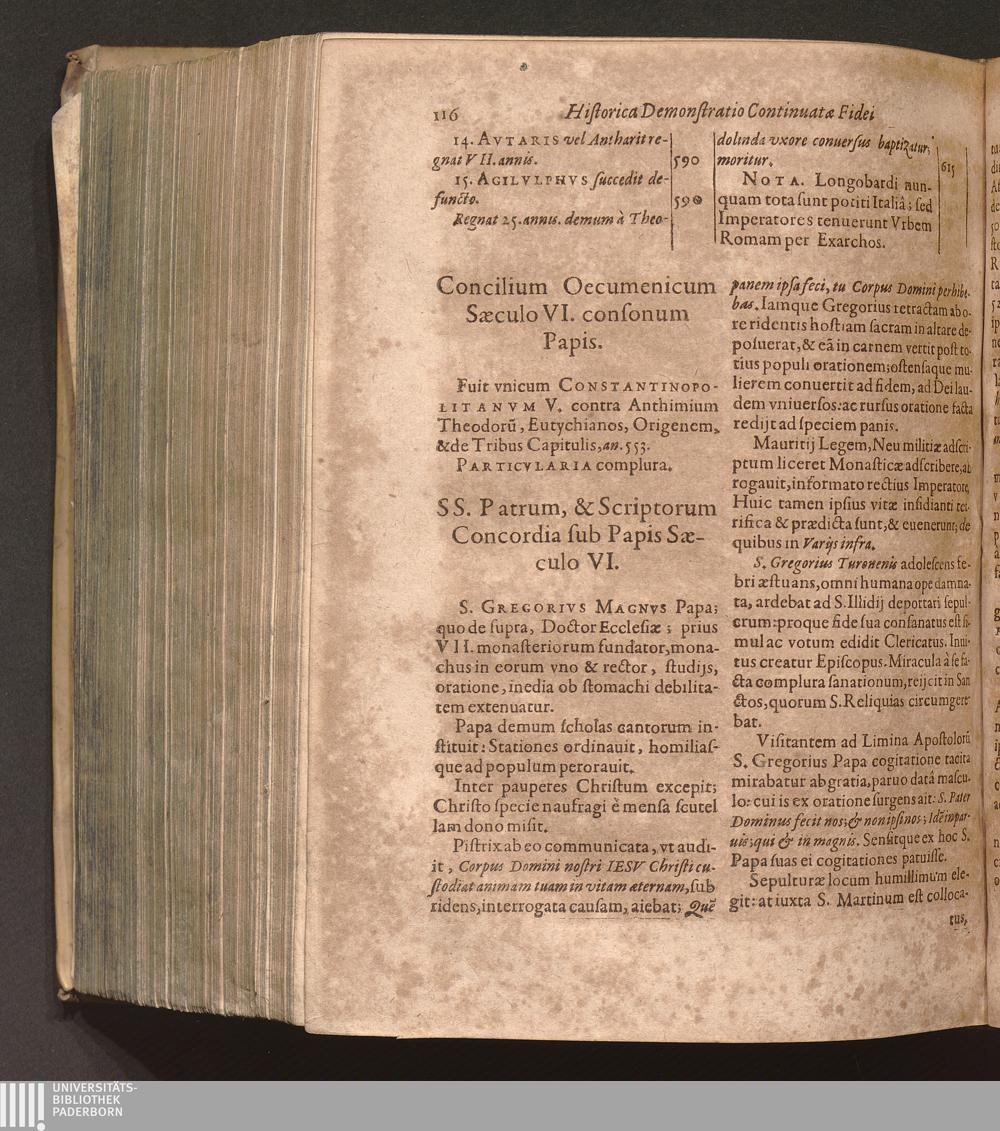 116 Hiſtorica Demonſtratio Continuatæ Fidei
14. AVTARIS vel Antharit re-
gnat VII. annis. 590
15. AGILVLPHVS ſuccedit de-
functo. 590
Regnat 25. annis. demum à Theo-
dolinda vxore conuerſus baptizatur;
moritur. 615
NOTA. Longobardi nun-
quam tota ſunt potiti Italiâ; ſed
Imperatores tenuerunt Vrbem
Romam per Exarchos.
Concilium Oecumenicum
Sæculo VI. conſonum
Papis.
Fuit vnicum CONSTANTINOPO-
LITANVM V. contra Anthimium
Theodorũ, Eutychianos, Origenem,
& de Tribus Capitulis, an. 553.
PARTICVLARIA complura.
SS. Patrum, & Scriptorum
Concordia ſub Papis Sæ-
culo VI.
S. GREGORIVS MAGNVS Papa;
quo de ſupra, Doctor Eccleſiæ; prius
VII. monaſteriorum fundator, mona-
chus in eorum vno & rector, ſtudijs,
oratione, inedia ob ſtomachi debilita-
tem extenuatur.
Papa demum ſcholas cantorum in-
ſtituit: Stationes ordinauit, homiliaſ-
que ad populum perorauit.
Inter pauperes Chriſtum excepit;
Chriſto ſpecie naufragi è menſa ſcutel
lam dono miſit.
Piſtrix ab eo communicata, vt audi-
it, Corpus Domini noſtri IESV Chriſti cu-
ſtodiat animam tuam in vitam æternam, ſub
ridens, interrogata cauſam, aiebat; Quẽ
panem ipſa feci, tu Corpus Domini perhibe-
bas. Iamque Gregorius retractam ab o-
re ridentis hoſtiam ſacram in altare de-
poſuerat, & eã in carnem vertit poſt to-
tius populi orationem; oſtenſaque mu-
lierem conuertit ad fidem, ad Dei lau-
dem vniuerſos: ac rurſus oratione facta
redijt ad ſpeciem panis.
Mauritij Legem, Neu militiæ adſcri-
ptum liceret Monaſticæ adſcribere, ab
rogauit, informato rectius Imperatore,
Huic tamen ipſius vitæ inſidianti ter-
rifica & prædicta ſunt, & euenerunt; de
quibus in Varijs infra.
S. Gregorius Turonenis adoleſcens fe-
bri æſtuans, omni humana ope damna-
ta, ardebat ad S. Illidij deportari ſepul-
crum: proque fide ſua conſanatus eſt ſi-
mul ac votum edidit Clericatus. Inui-
tus creatur Epiſcopus. Miracula à ſe fa-
cta complura ſanationum, reijcit in San
ctos, quorum S. Reliquias circumgere-
bat.
Viſitantem ad Limina Apoſtolorũ
S. Gregorius Papa cogitatione tacita
mirabatur ab gratia, paruo datâ maſcu-
lo: cui is ex oratione ſurgens ait: S. Pater
Dominus fecit nos; & non ipſi nos; Idẽ in par-
uis; qui & in magnis. Senſitque ex hoc S.
Papa ſuas ei cogitationes patuiſſe.
Sepulturæ locum humillimum ele-
git: at iuxta S. Martinum eſt colloca-
tus,
UNIVERSITÄTS-
BIBLIOTHEK
PADERBORN